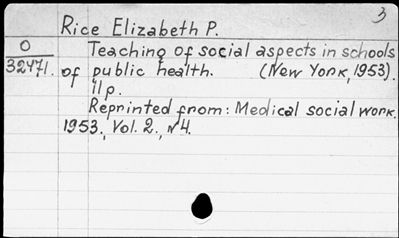 3
Rice Elizabeth P.
O Teaching of social aspects in schools
32471. of public health. (New York, 1953).
11p.
Reprinted from: Medical social work.
1953., Vol. 2., N4.